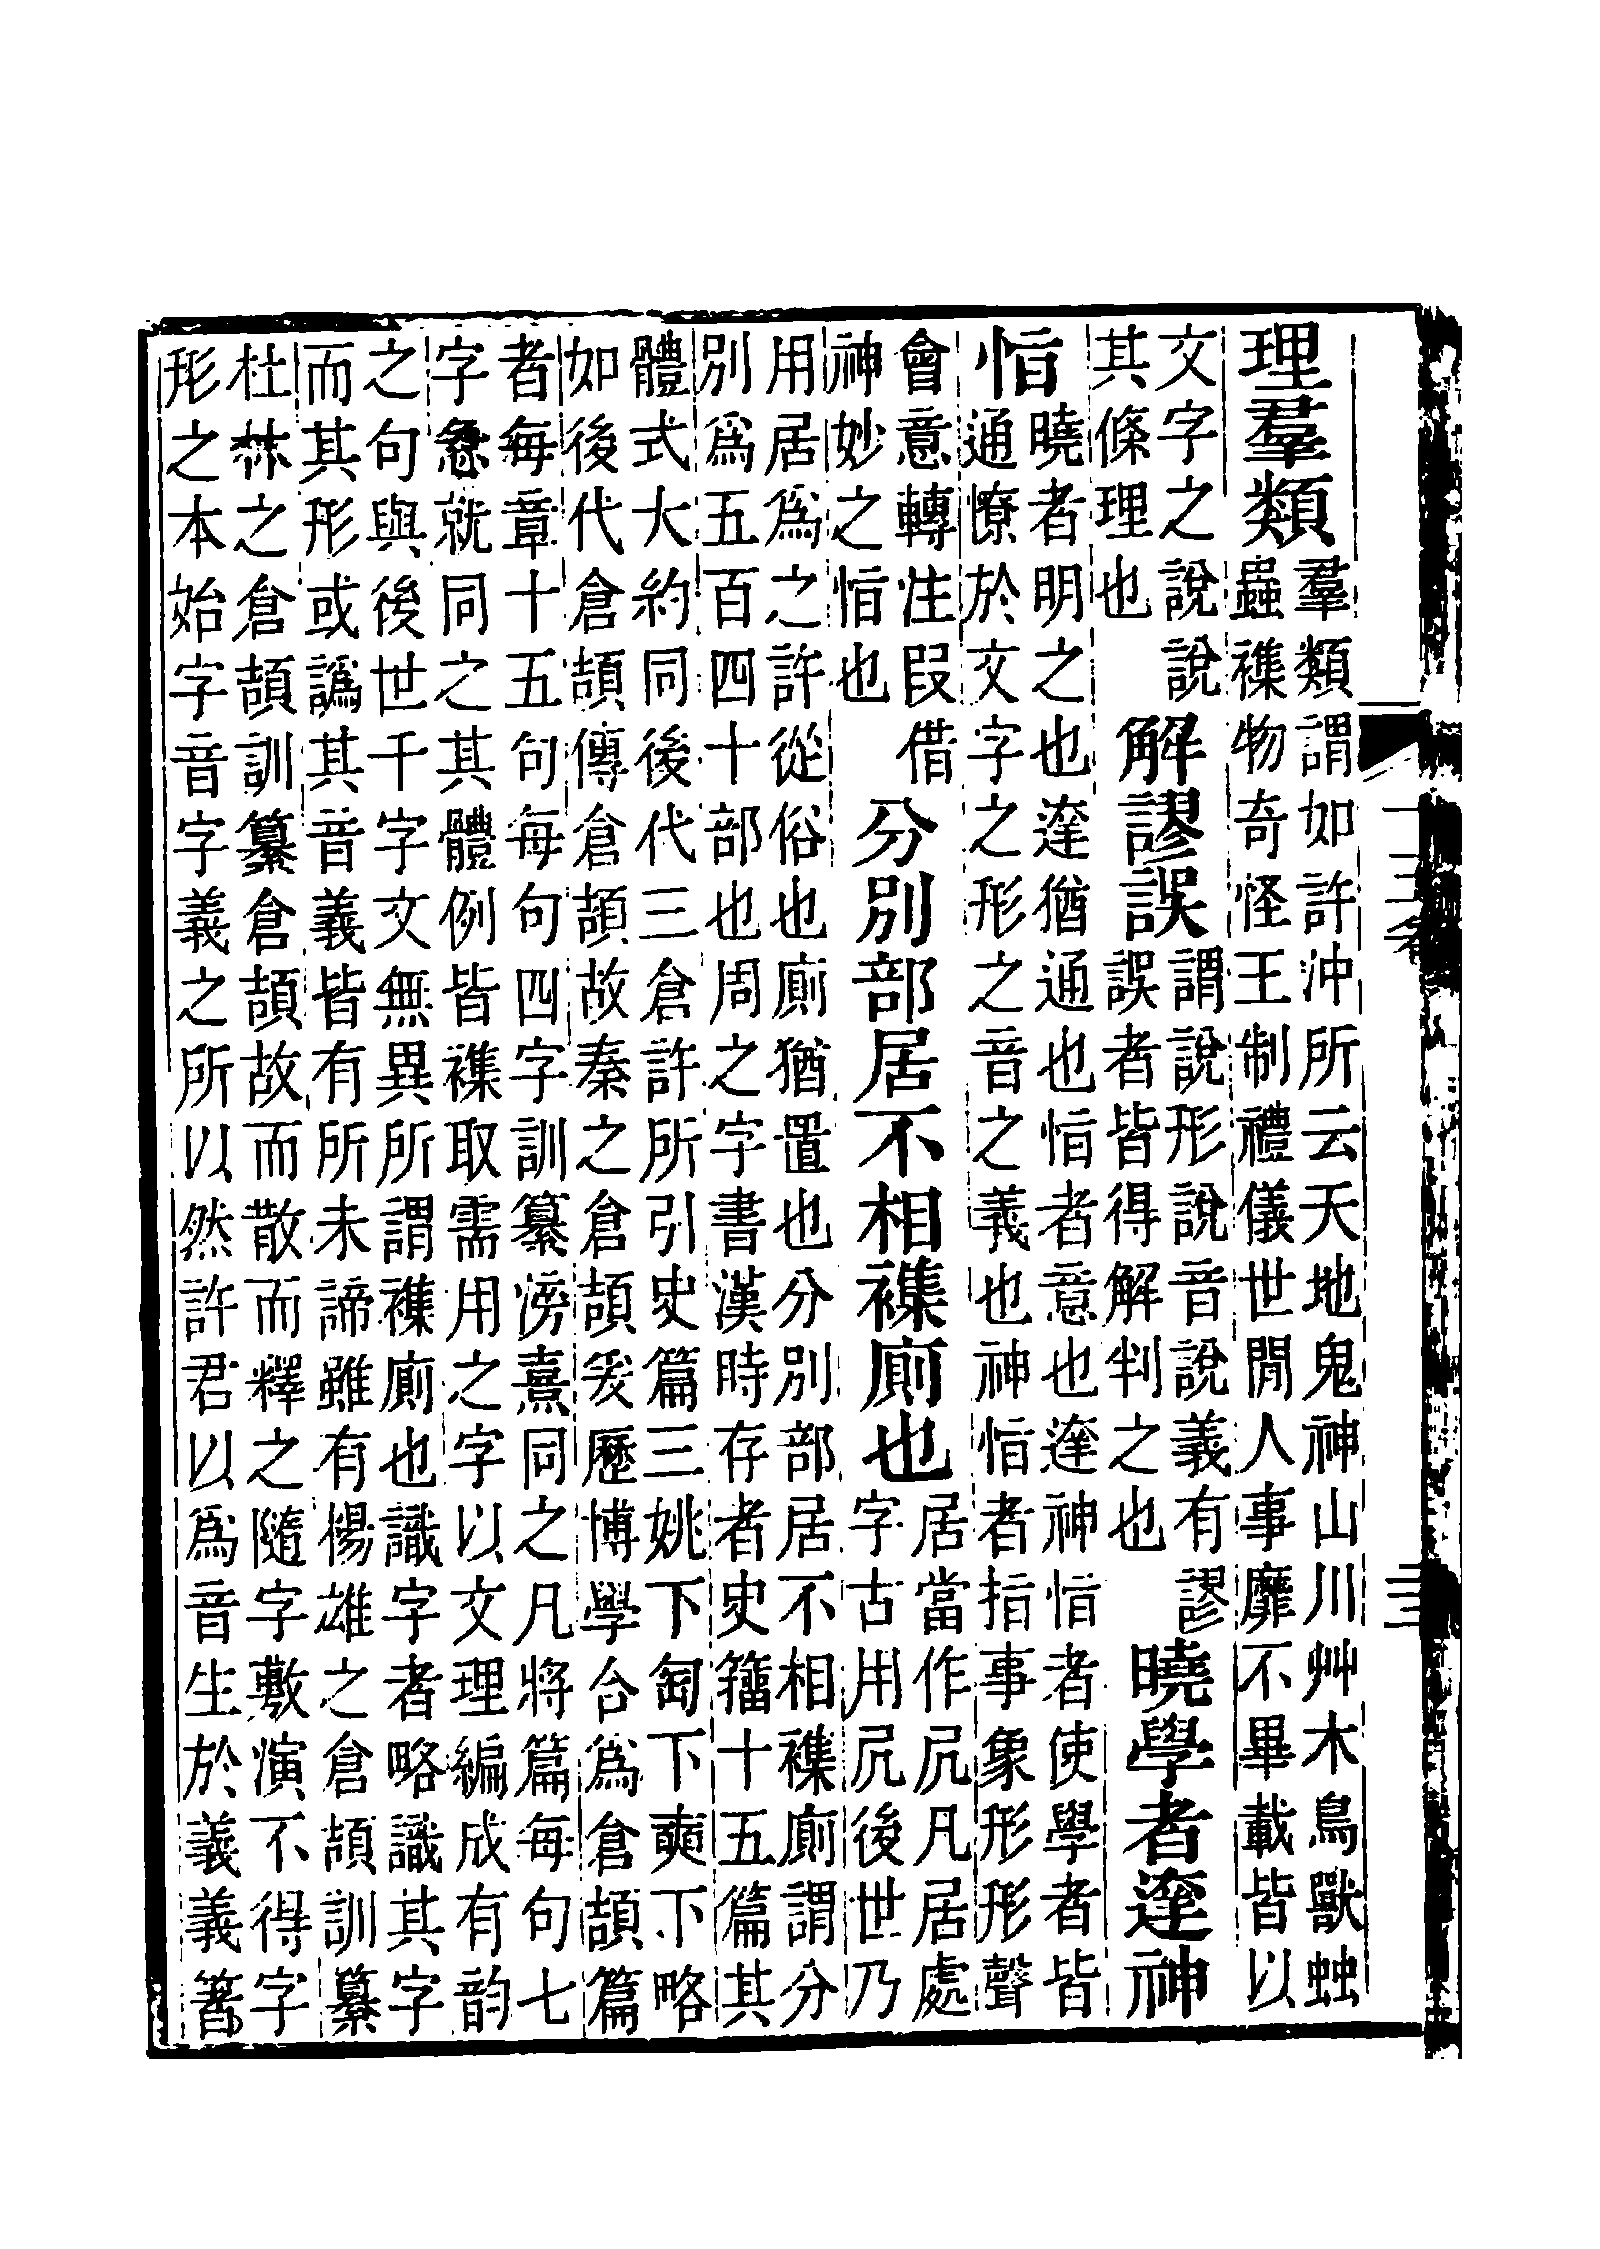 理羣類
羣類謂如許沖所云天地鬼神山川艸木鳥獸䖵
蟲襍物奇怪王制禮儀世閒人事靡不畢載皆以
文字之說說
其條理也
解謬誤
謂說形說音說義有謬
誤者皆得解判之也
曉學者達神
恉
曉者明之也達猶通也恉者意也達神恉者使學者皆
通憭於文字之形之音之義也神恉者指事象形形聲
會意轉注叚借
神妙之恉也
分別部居不相襍廁也
居當作凥凡居處
字古用凥後世乃
用居爲之許從俗也廁猶置也分別部居不相襍廁謂分
別爲五百四十部也周之字書漢時存者史籒十五篇其
體式大約同後代三倉許所引史篇三姚下匋下奭下略
如後代倉頡傳倉頡故秦之倉頡爰歷博學合爲倉頡篇
者每章十五句每句四字訓纂滂熹同之凡將篇每句七
字急就同之其體例皆襍取需用之字以文理編成有韵
之句與後世千字文無異所謂襍廁也識字者略識其字
而其形或譌其音義皆有所未諦雖有楊雄之倉頡訓纂
杜林之倉頡訓纂倉頡故而散而釋之隨字敷演不得字
形之本始字音字義之所以然許君以爲音生於義義箸